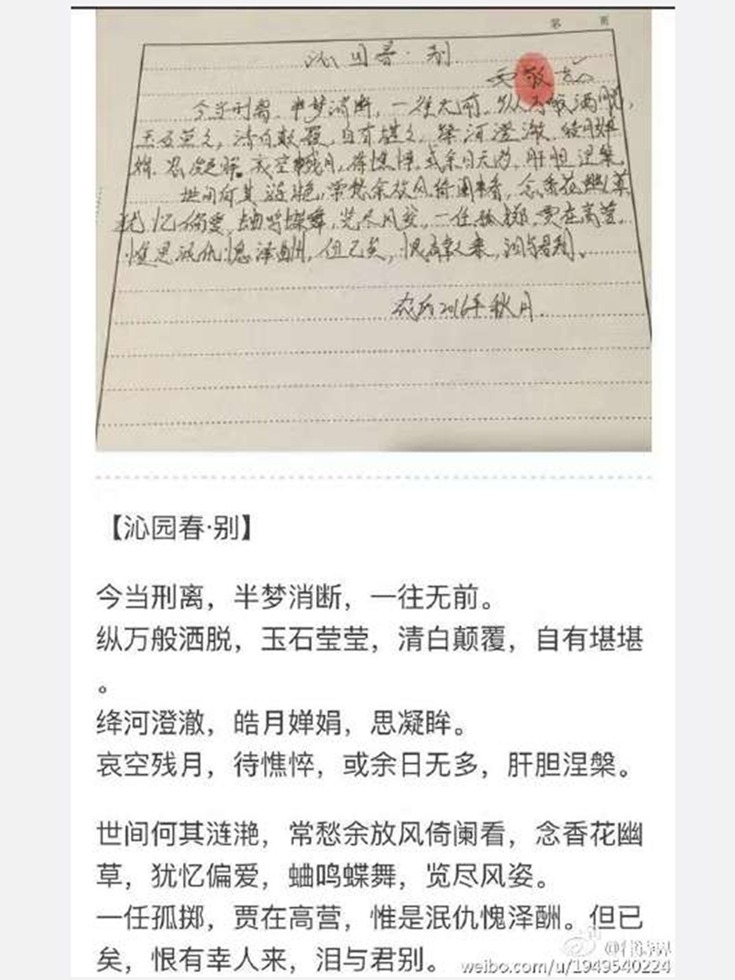 第 页
沁园春·别
今当刑离，半梦消断，一往无前，纵万般洒脱，
玉石莹莹，清白颠覆，自有堪堪，绛河澄澈，皓月婵
娟，思凝眸。哀空残月，待憔悴，或余日无多，肝胆涅槃，
世间何其涟滟，常愁余放风倚阑看，念香花幽草
犹忆偏爱，蛐鸣蝶舞，览尽风姿，一任孤掷，贾在高营，
惟是泯仇愧泽酬，但已矣，恨有幸人来，泪与君别。
秋月
【沁园春·别】
今当刑离，半梦消断，一往无前。
纵万般洒脱，玉石莹莹，清白颠覆，自有堪堪
。
绛河澄澈，皓月婵娟，思凝眸。
哀空残月，待憔悴，或余日无多，肝胆涅槃。
世间何其涟滟，常愁余放风倚阑看，念香花幽
草，犹忆偏爱，蛐鸣蝶舞，览尽风姿。
一任孤掷，贾在高营，惟是泯仇愧泽酬。但已
矣，恨有幸人来，泪与君别。
weibo.com/u/1949540224